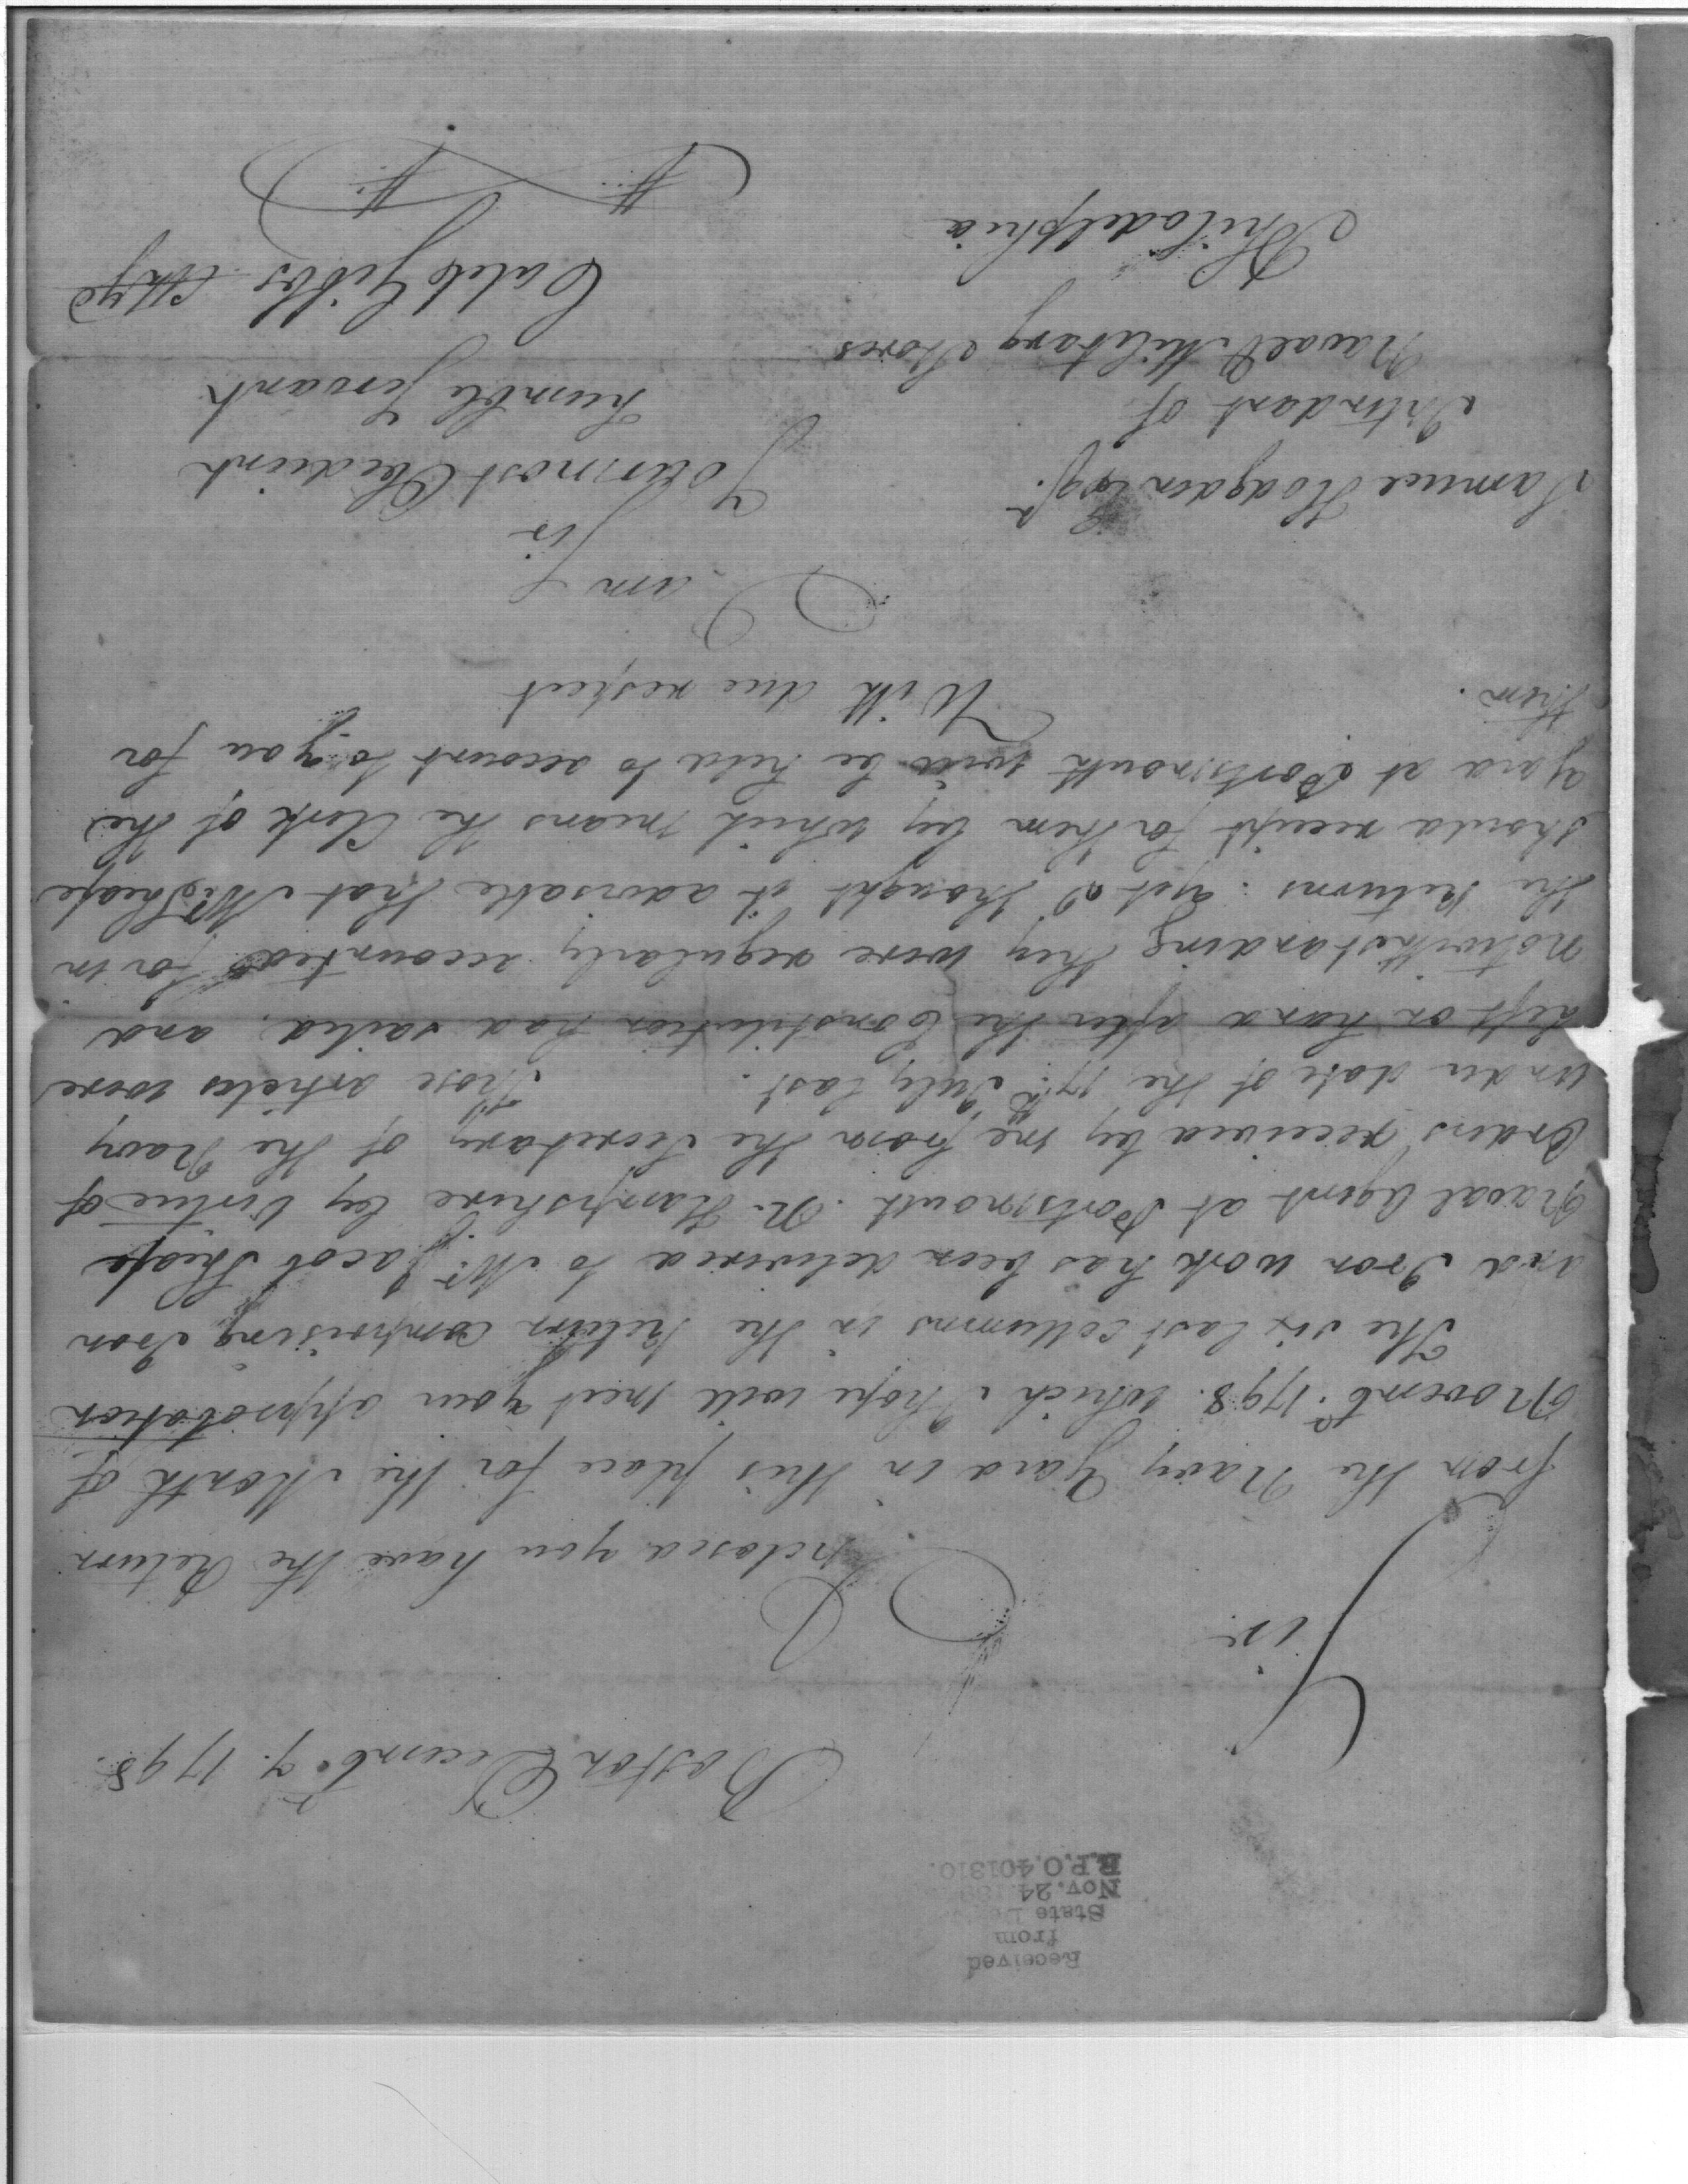 Received
from
State
Nov. 24
R.P.O. 401310.
Boston Decemb.r 7. 1798.
Sir
Inclosed you have the Return
from the Navy Yard in this place for the Month of
Novemb.r 1798. which i hope will meet your approbation
The six last collumns in the Return comprising Iron
and Iron work has been delivered to Mr. Jacob Sheafe
Naval Agent at Portsmouth N. Hampshire by Virtue of
Orders received by me from the Secretary of the Navy
under date of the 17th July last. Those articles were
left on hand after the Constitution had sailed, and
notwithstanding they were regularly accounted for in
the Returns: yet I thought it advisable that Mr. Sheafe
should receipt for them by which means the Clerk of the
yard at Portsmouth will be held to account to you for
them.
With due respect
I am
Sir
Your most Obedient
humble Servant
Caleb Gibbs
Samuel Hodgdon Esqr.
Intendant of
Naval & Military Stores
Philadelphia